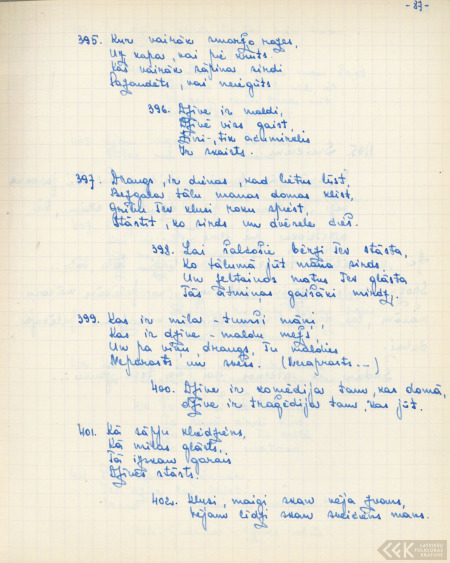 - 87 -
395. Kur vairāk smaržo rozes,
Uz kapa, vai pie krūts
Kas vairāk sāpina sirdi
Pazaudēts, vai neiegūts
396. Dzīve ir maldi,
Dzīvē viss gaist,
Dzīvi, tik acumirklis
Ir skaists.
397. Draugs, ir dienas, kad lietus līst,
Bezgala tālu manas domas klīst,
Gribu Tev klusi roku spiest,
Stāstīt, ko sirds un dvēsele cieš.
398. Lai šalcošie bērzi Tev stāsta,
Ko tālumā jūt mana sirds,
Un zeltainos matus Tev glāsta
Tās atmiņas gaišāki mirdz.
399. Kas ir mīla - tumši māņi,
Kas ir dzīve - maldu mežs,
Un pa viņu, draugs, Tu maldies
Neparasts un svešs. (Neaprasts --)
400. Dzīve ir komēdija tam, kas domā,
dzīve ir traģēdija tam, kas jūt.
401. Kā sāpju kliedziens,
Kā mīlas glāsts,
Tā izskan garais
Dzīves stāsts.
402. Klusi, maigi skan vēja zvans,
vējam līdzi skan sveiciens mans.
LATVIEŠU
FOLKLORAS
KRĀTUVE